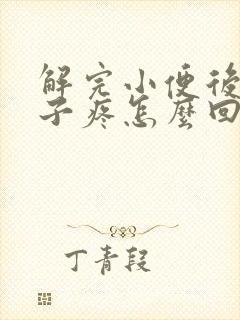 解完小便後
子疼怎麼回
丁青段